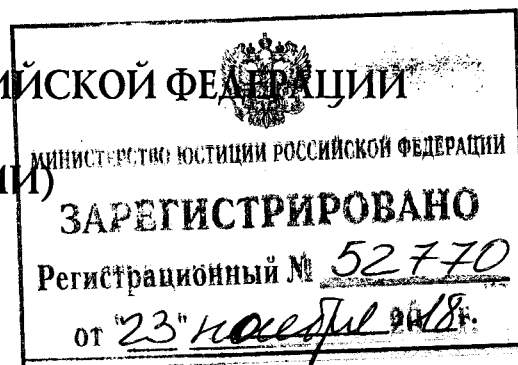 ЙСКОЙ ФЕДЕРАЦИИ
МИНИСТЕРСТВО ЮСТИЦИИ РОССИЙСКОЙ ФЕДЕРАЦИИ
ИИ)
ЗАРЕГИСТРИРОВАНО
Регистрационный № 52770
от "23" ноября 2018г.